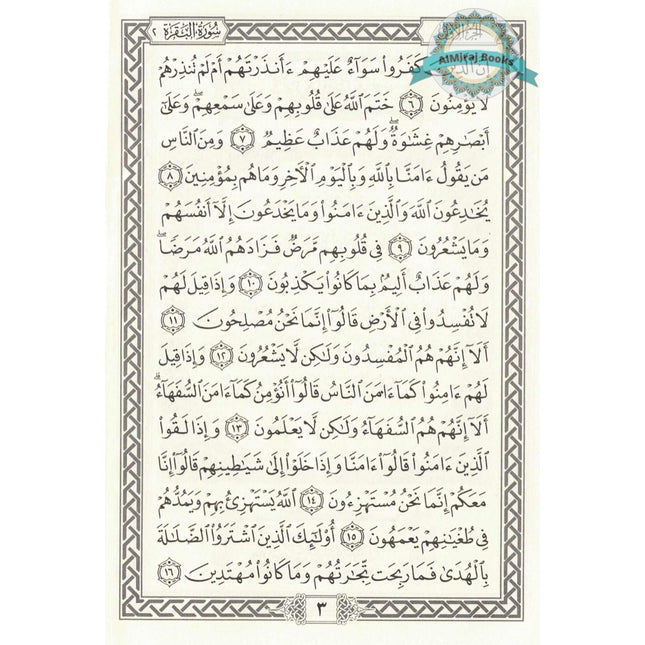 سُورَةُ البَقَرَةِ ٢
AlMiraj Books
كَفَرُوا۟ سَوَآءٌ عَلَيْهِمْ ءَأَنذَرْتَهُمْ أَمْ لَمْ تُنذِرْهُمْ
لَا يُؤْمِنُونَ ٦ خَتَمَ ٱللَّهُ عَلَىٰ قُلُوبِهِمْ وَعَلَىٰ سَمْعِهِمْ ۖ وَعَلَىٰٓ
أَبْصَٰرِهِمْ غِشَٰوَةٌ ۖ وَلَهُمْ عَذَابٌ عَظِيمٌ ٧ وَمِنَ ٱلنَّاسِ
مَن يَقُولُ ءَامَنَّا بِٱللَّهِ وَبِٱلْيَوْمِ ٱلْأَخِرِ وَمَا هُم بِمُؤْمِنِينَ ٨
يُخَٰدِعُونَ ٱللَّهَ وَٱلَّذِينَ ءَامَنُوا۟ وَمَا يَخْدَعُونَ إِلَّآ أَنفُسَهُمْ
وَمَا يَشْعُرُونَ ٩ فِى قُلُوبِهِم مَّرَضٌ فَزَادَهُمُ ٱللَّهُ مَرَضًا ۖ
وَلَهُمْ عَذَابٌ أَلِيمٌۢ بِمَا كَانُوا۟ يَكْذِبُونَ ١٠ وَإِذَا قِيلَ لَهُمْ
لَا تُفْسِدُوا۟ فِى ٱلْأَرْضِ قَالُوٓا۟ إِنَّمَا نَحْنُ مُصْلِحُونَ ١١
أَلَآ إِنَّهُمْ هُمُ ٱلْمُفْسِدُونَ وَلَٰكِن لَّا يَشْعُرُونَ ١٢ وَإِذَا قِيلَ
لَهُمْ ءَامِنُوا۟ كَمَآ ءَامَنَ ٱلنَّاسُ قَالُوٓا۟ أَنُؤْمِنُ كَمَآ ءَامَنَ ٱلسُّفَهَآءُ ۗ
أَلَآ إِنَّهُمْ هُمُ ٱلسُّفَهَآءُ وَلَٰكِن لَّا يَعْلَمُونَ ١٣ وَإِذَا لَقُوا۟
ٱلَّذِينَ ءَامَنُوا۟ قَالُوٓا۟ ءَامَنَّا وَإِذَا خَلَوْا۟ إِلَىٰ شَيَٰطِينِهِمْ قَالُوٓا۟ إِنَّا
مَعَكُمْ إِنَّمَا نَحْنُ مُسْتَهْزِءُونَ ١٤ ٱللَّهُ يَسْتَهْزِئُ بِهِمْ وَيَمُدُّهُمْ
فِى طُغْيَٰنِهِمْ يَعْمَهُونَ ١٥ أُو۟لَٰٓئِكَ ٱلَّذِينَ ٱشْتَرَوُا۟ ٱلضَّلَٰلَةَ
بِٱلْهُدَىٰ فَمَا رَبِحَت تِّجَٰرَتُهُمْ وَمَا كَانُوا۟ مُهْتَدِينَ ١٦
٣